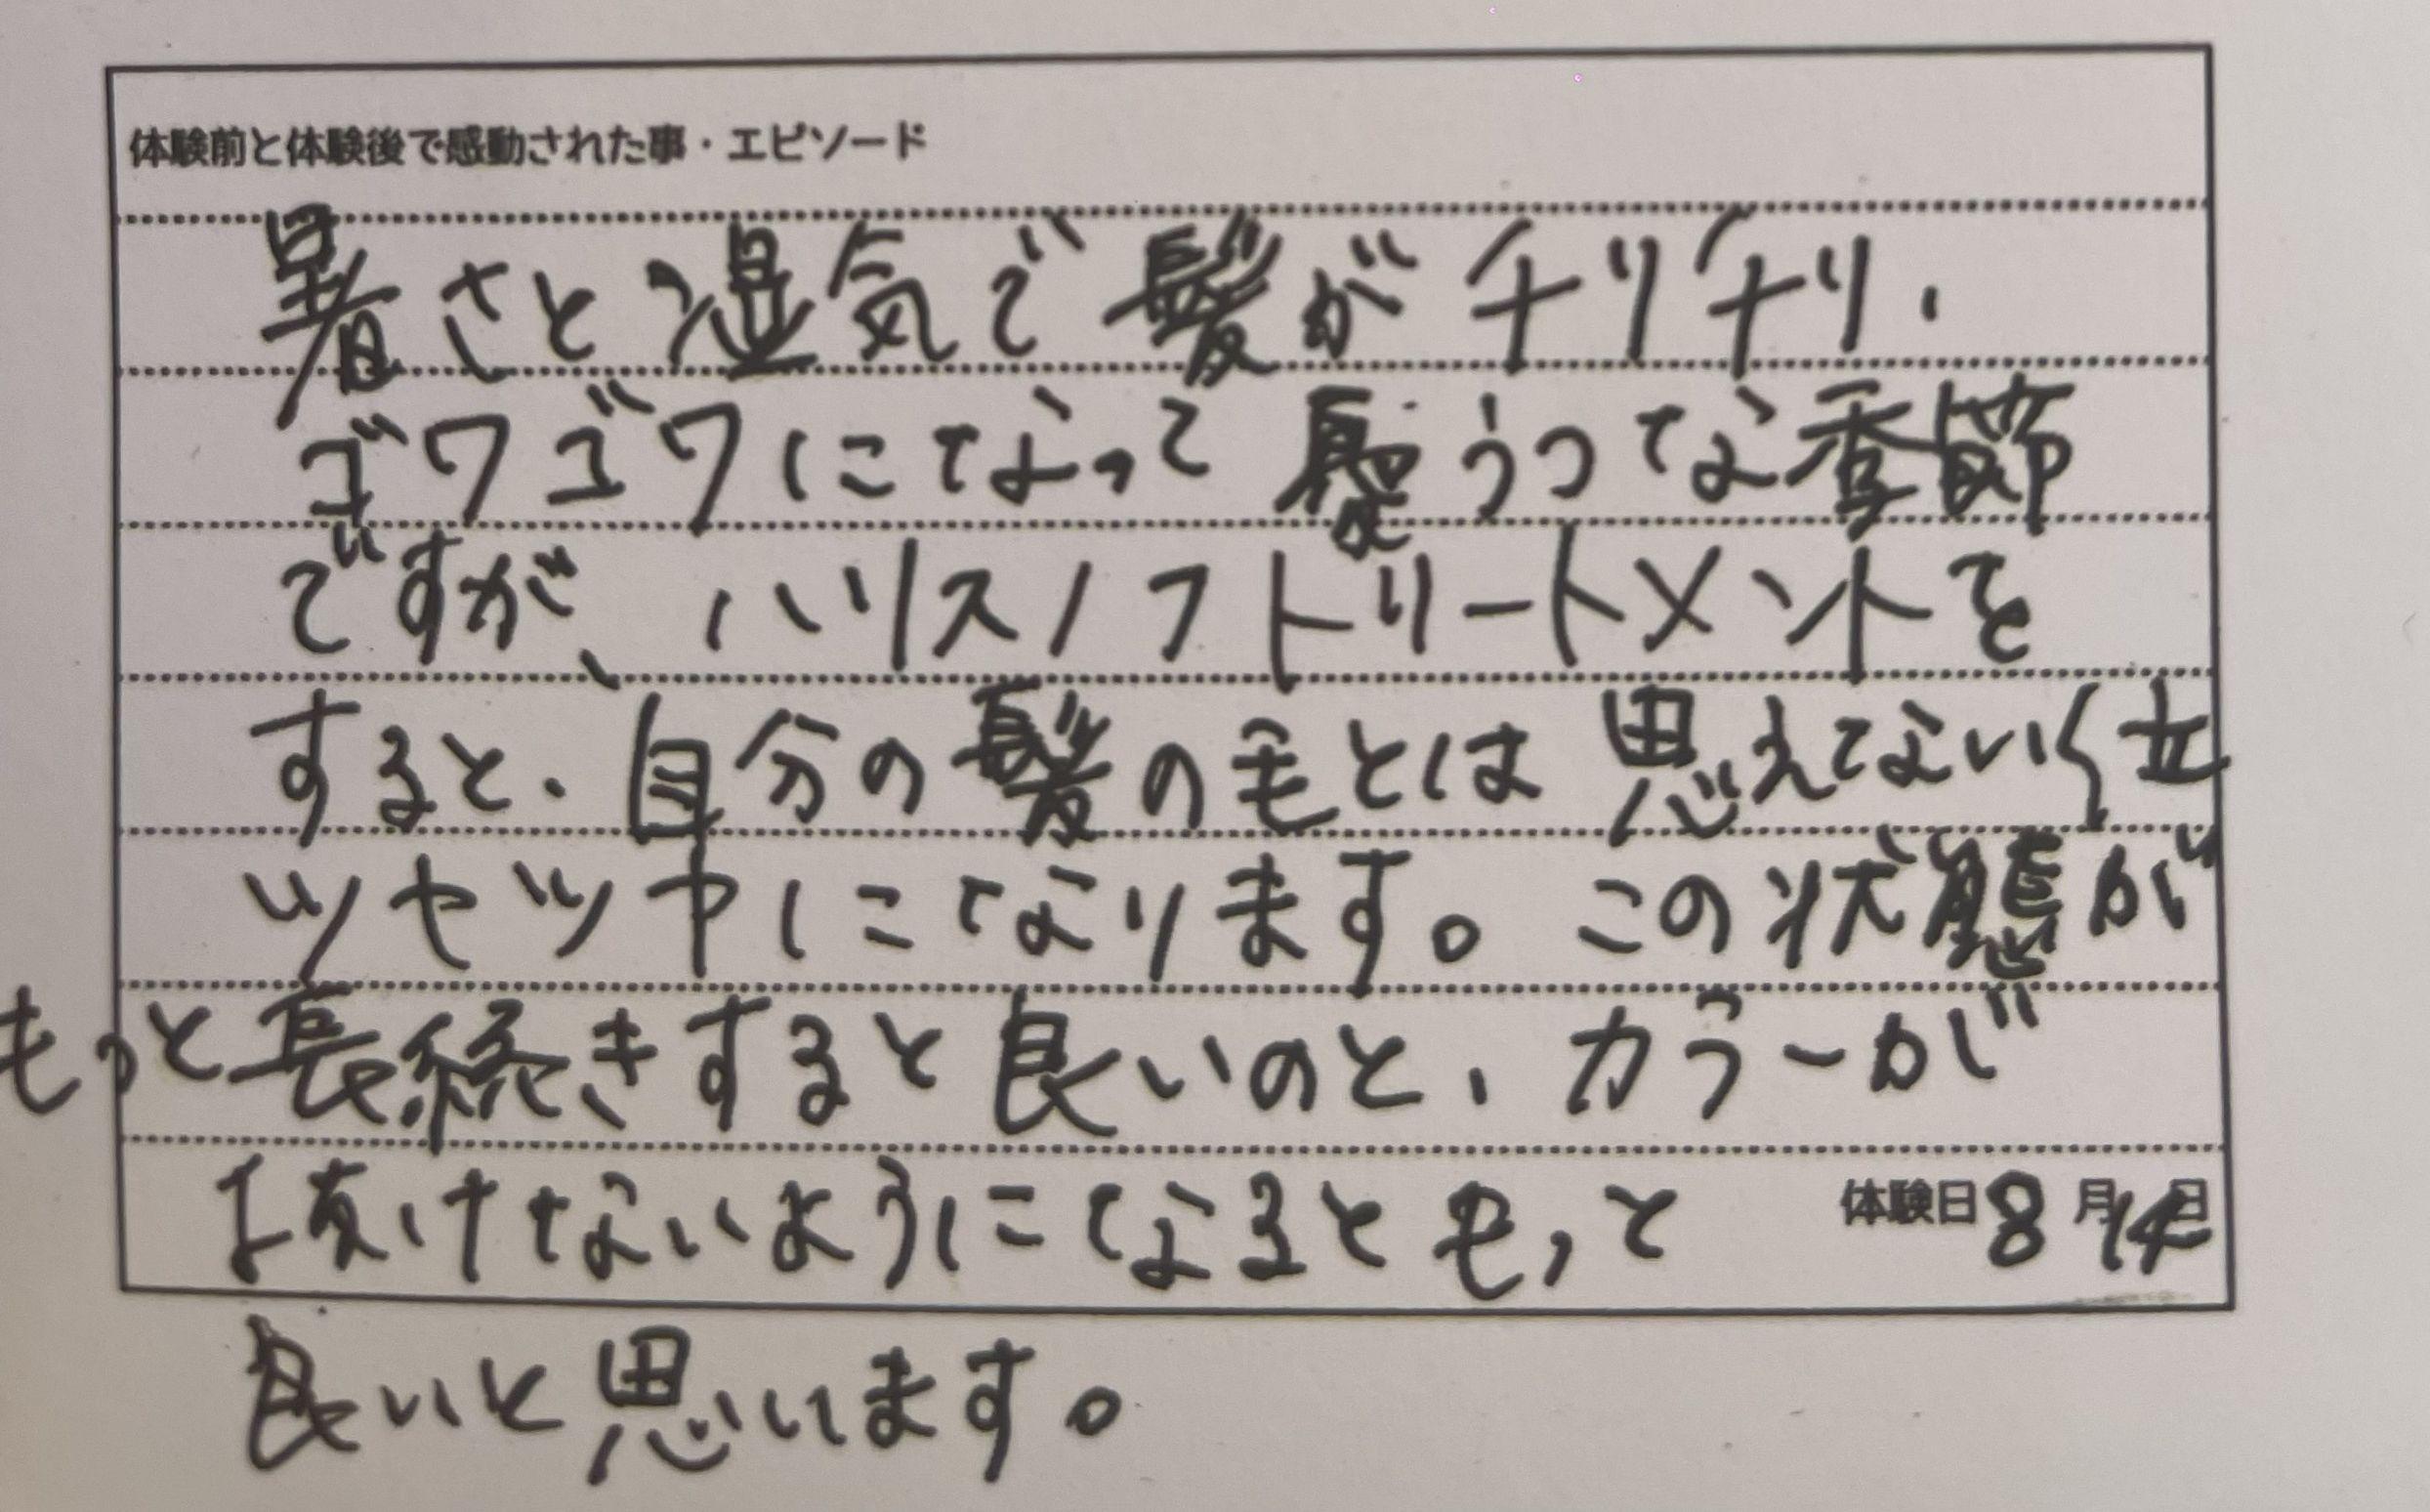 体験前と体験後で感動された事・エピソード
暑さと湿気で髪がチリチリ、
ゴワゴワになって憂うつな季節
ですが、ハリスノフトリートメントを
すると、自分の髪の毛とは思えてないくら
ツヤツヤになります。この状態が
もっと長続きすると良いのと、カラーが
抜けないようになるともっと
体験日 8月14日
良いと思います。